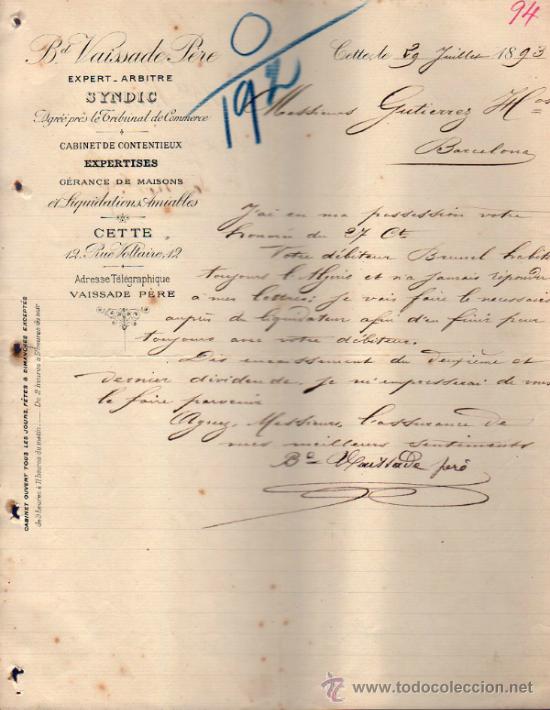 94
192
Bd Vaissade Père
EXPERT-ARBITRE
SYNDIC
Agréé près le Tribunal de Commerce
CABINET DE CONTENTIEUX
EXPERTISES
GÉRANCE DE MAISONS
et Liquidations Amiables
CETTE
12, Rue Voltaire, 12
Adresse Télégraphique
VAISSADE PÈRE
CABINET OUVERT TOUS LES JOURS, FÊTES & DIMANCHES EXCEPTÉS
de 9 heures à 11 heures du matin De 2 heures à 5 heures du soir
Cette, le 29 Juillet 1893
Messieurs Gutierrez Hos
Barcelona
J'ai en ma possession votre
honorée du 27 Ct
Votre débiteur Brunel habite
toujours l'Algérie et n'a jamais répondu
à mes lettres; je vais faire le nécessaire
auprès du liquidateur afin d'en finir pour
toujours avec votre débiteur.
Dès encaissement du deuxième et
dernier dividende, je m'empresserai de vous
le faire parvenir
Agréez, Messieurs, l'assurance de
mes meilleurs sentiments
Bd Vaissade père
www.todocoleccion.net